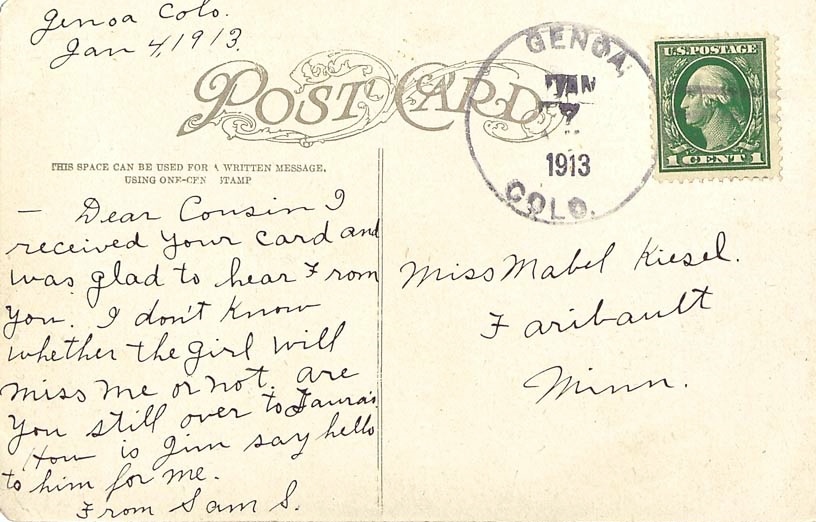 Genoa Colo.
Jan 4, 1913.
POST CARD
GENOA,
JAN
7
1913
COLO.
U.S. POSTAGE
1 CENT 1
THIS SPACE CAN BE USED FOR A WRITTEN MESSAGE,
USING ONE-CEN STAMP
– Dear Cousin I
received your card and
was glad to hear From
you. I don't know
whether the girl will
miss me or not. are
you still over to Laura's
How is Jim say hello
to him for me.
From Sam S.
Miss Mabel Kiesel.
Faribault
Minn.